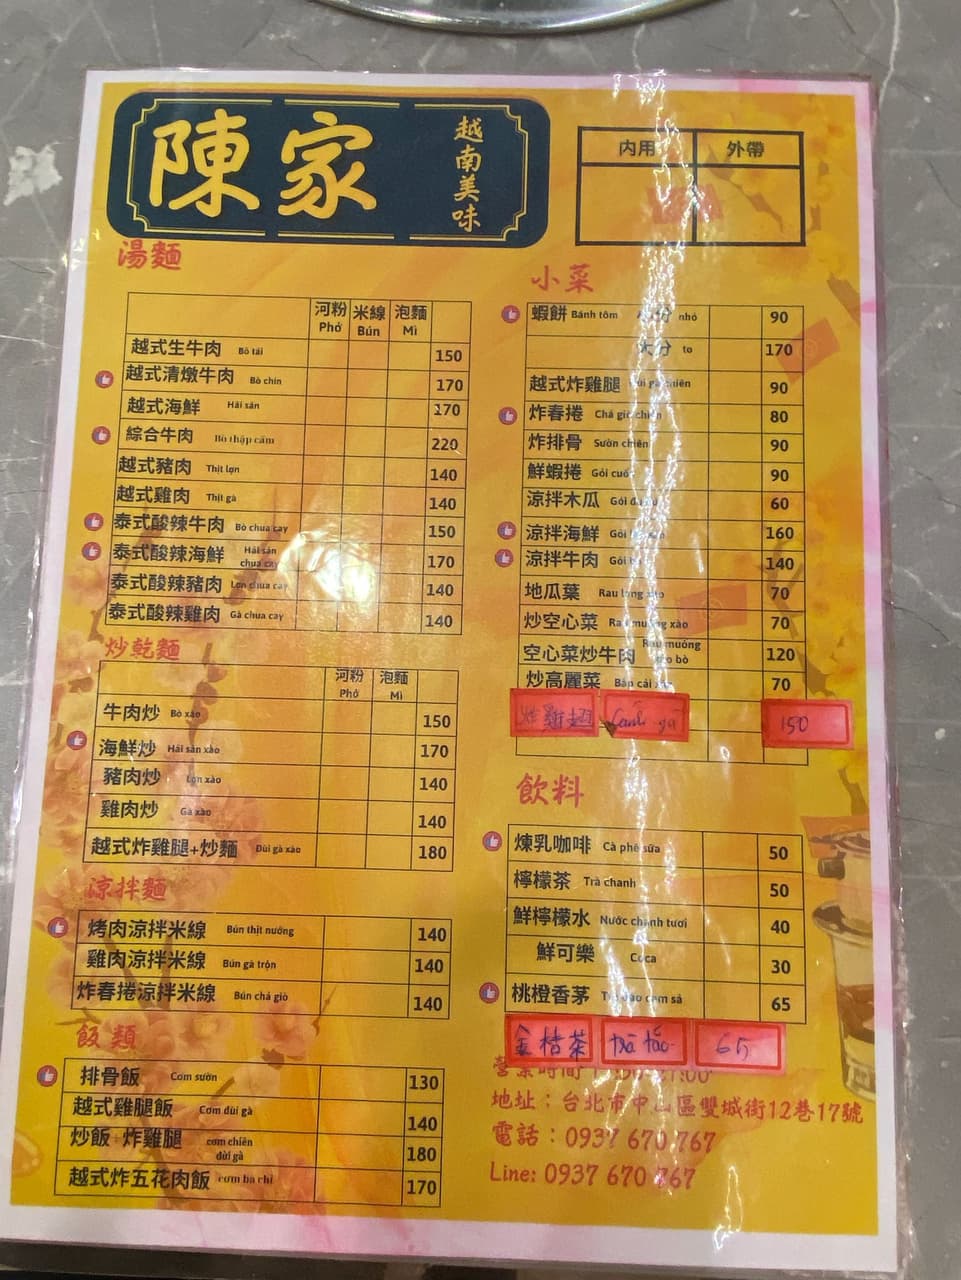 陳家
越南美味
内用 外帶
湯麵
河粉 米線 泡麵
Phở Bún Mì
越式生牛肉 Bò tái 150
越式清燉牛肉 Bò chín 170
越式海鮮 Hải sản 170
綜合牛肉 Bò thập cẩm 220
越式豬肉 Thịt lợn 140
越式雞肉 Thịt gà 140
泰式酸辣牛肉 Bò chua cay 150
泰式酸辣海鮮 Hải sản chua cay 170
泰式酸辣豬肉 Lợn chua cay 140
泰式酸辣雞肉 Gà chua cay 140
炒乾麵
河粉 泡麵
Phở Mì
牛肉炒 Bò xào 150
海鮮炒 Hải sản xào 170
豬肉炒 Lợn xào 140
雞肉炒 Gà xào 140
越式炸雞腿+炒麵 Đùi gà xào 180
涼拌麵
烤肉涼拌米線 Bún thịt nướng 140
雞肉涼拌米線 Bún gà trộn 140
炸春捲涼拌米線 Bún chả giò 140
飯類
排骨飯 Cơm sườn 130
越式雞腿飯 Cơm đùi gà 140
炒飯 炸雞腿 cơm chiên đùi gà 180
越式炸五花肉飯 cơm ba chỉ 170
小菜
蝦餅 Bánh tôm 小分 nhỏ 90
大分 to 170
越式炸雞腿 90
炸春捲 Chả giò chiên 80
炸排骨 Sườn chiên 90
鮮蝦捲 Gỏi cuốn 90
涼拌木瓜 Gỏi 60
涼拌海鮮 Gỏi 160
涼拌牛肉 Gỏi 140
地瓜葉 Rau lang xào 70
炒空心菜 Rau muống xào 70
空心菜炒牛肉 Rau muống xào bò 120
炒高麗菜 Bắp cải xào 70
炸雞翅 Cánh gà 150
飲料
煉乳咖啡 Cà phê sữa 50
檸檬茶 Trà chanh 50
鮮檸檬水 Nước chanh tươi 40
鮮可樂 Coca 30
桃橙香茅 Trà đào cam sả 65
金桔茶 trà tắc 65
營業時間
地址：台北市中山區雙城街12巷17號
電話：0937 670 767
Line: 0937 670 767